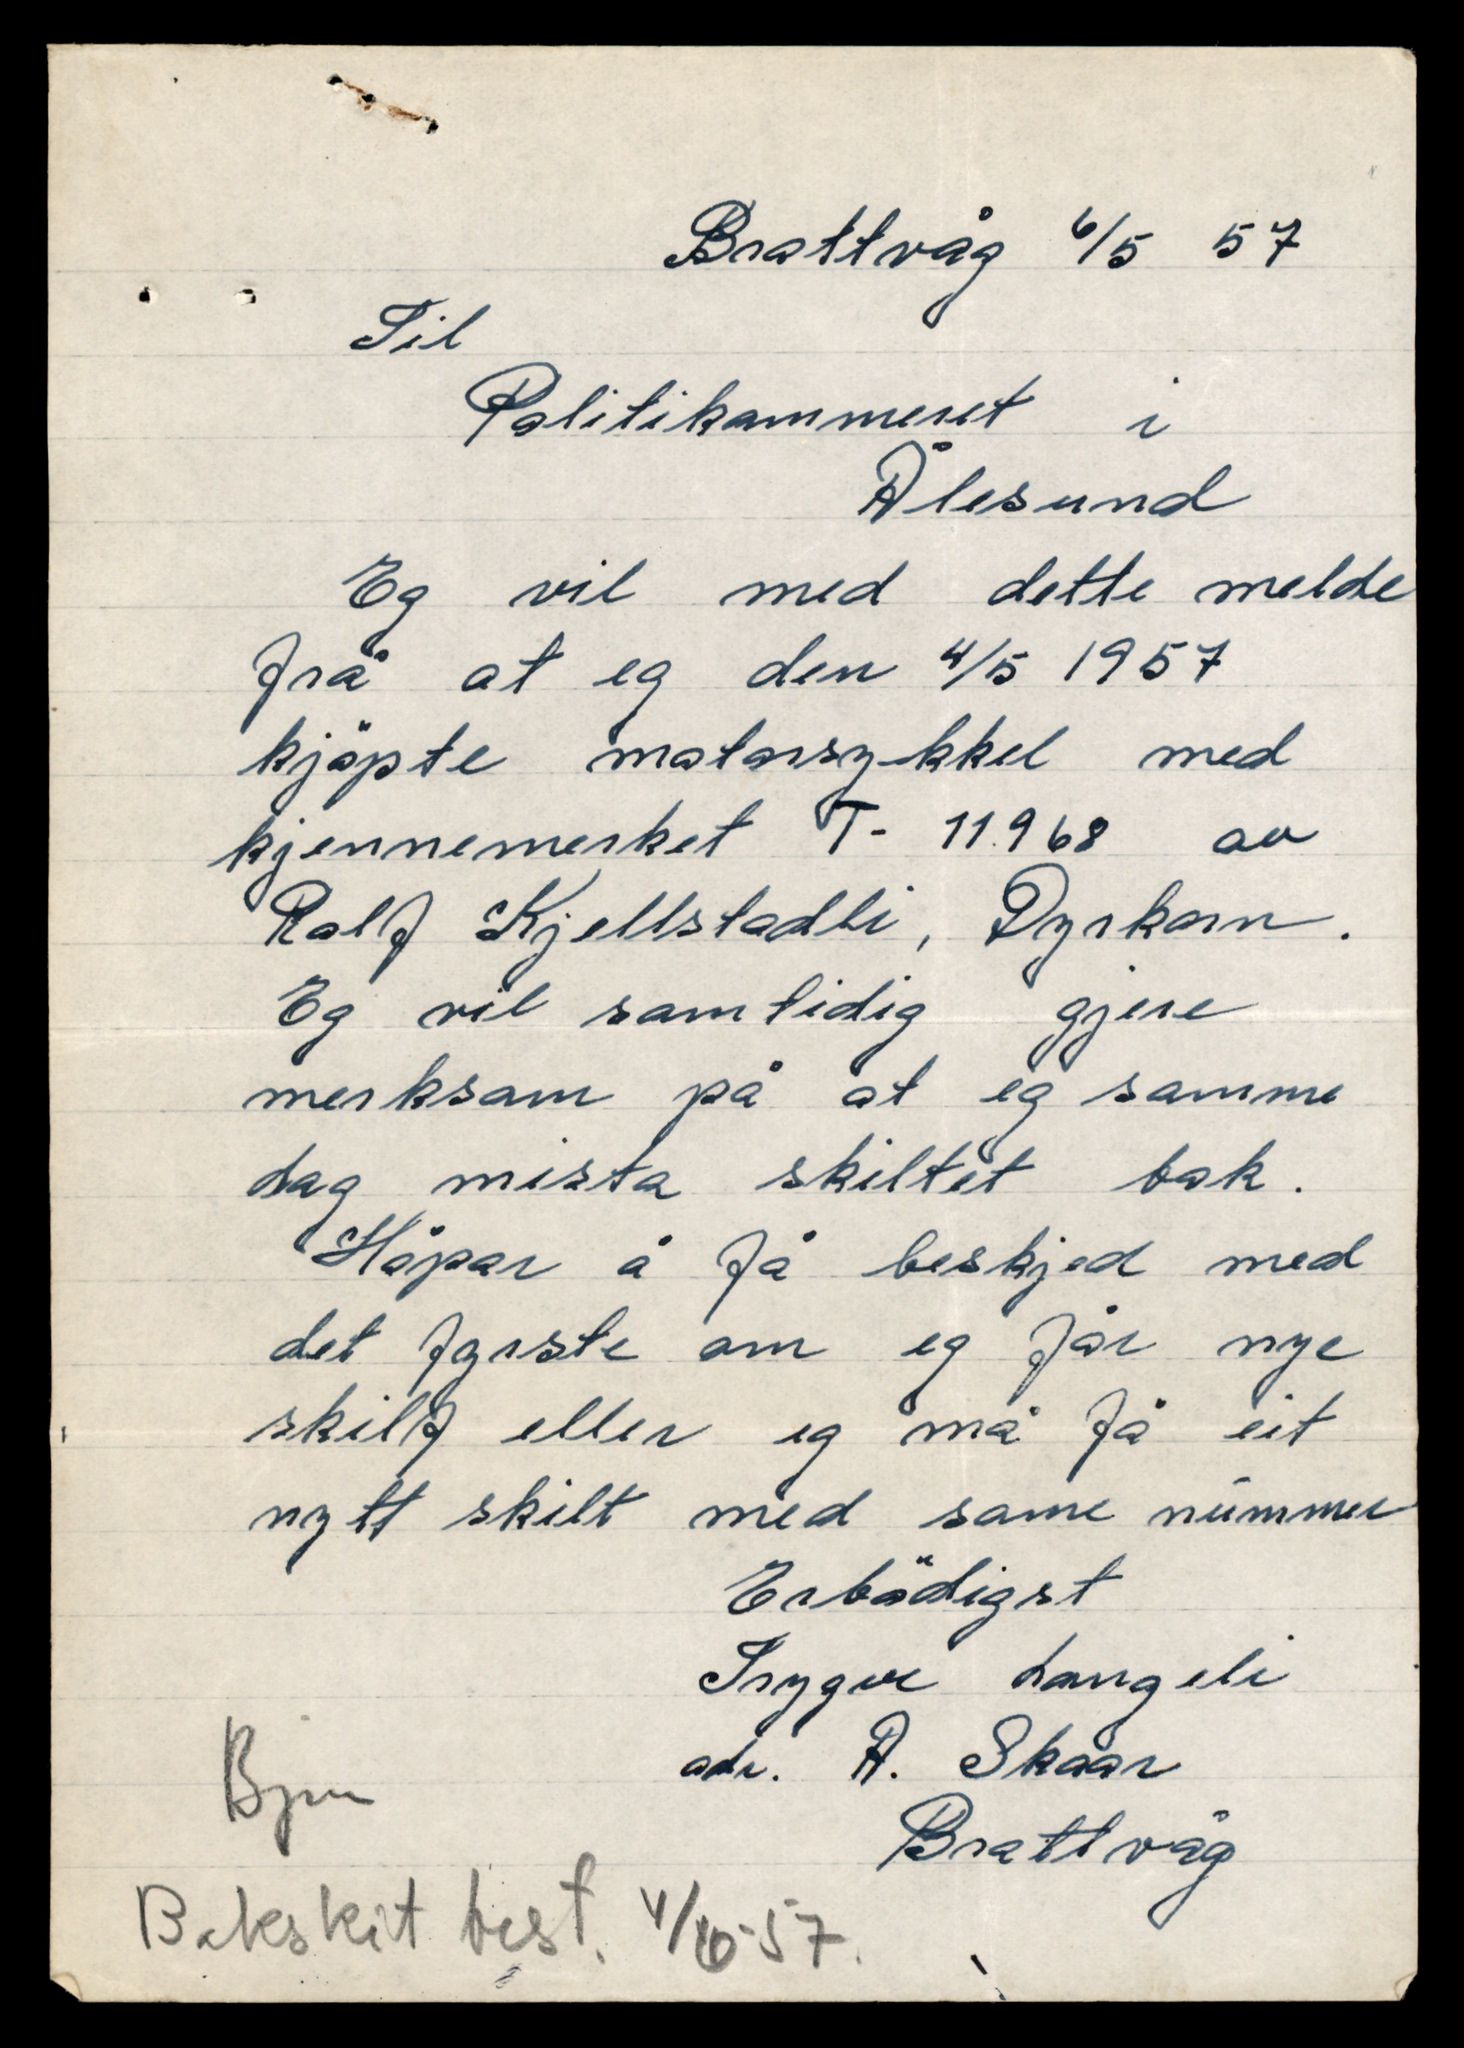 Brattvåg 6/5 57
Til
Politikammeret i
Ålesund
Eg vil med dette melde
frå at eg den 4/5 1957
kjöpte motorsykkel med
kjennemerket T- 11968 av
Rolf Kjellstadli, Dyrkorn.
Eg vil samtidig gjere
merksam på at eg samme
dag mista skiltet bak.
Håpar å få beskjed med
det fyrste om eg får nye
skilf eller eg må få eit
nytt skilt med same nummer
Erbödigst
Trygve Langeli
adr. A. Skaar
Brattvåg
Bakskilt best. 4/6-57.